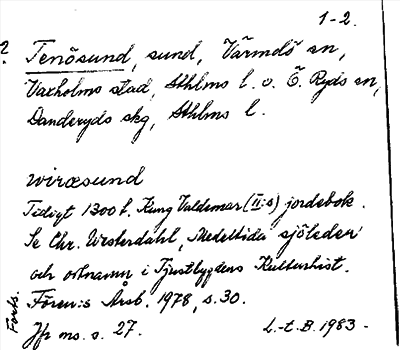 1-2.
? Tenösund, sund, Värmdö sn,
Vaxholms stad, Sthlms l. o. Ö. Ryds sn,
Danderyds skg, Sthlms l.
wiræsund
Tidigt 1300 t. Kung Valdemar (II:s) jordebok.
Se Chr. Westerdahl, Medeltida sjöleder
och ortnamn i Tjustbygdens Kulturhist.
Fören:s Årsb. 1978, s. 30.
Jfr ms. s. 27. L.-t. B. 1983-
Forts.